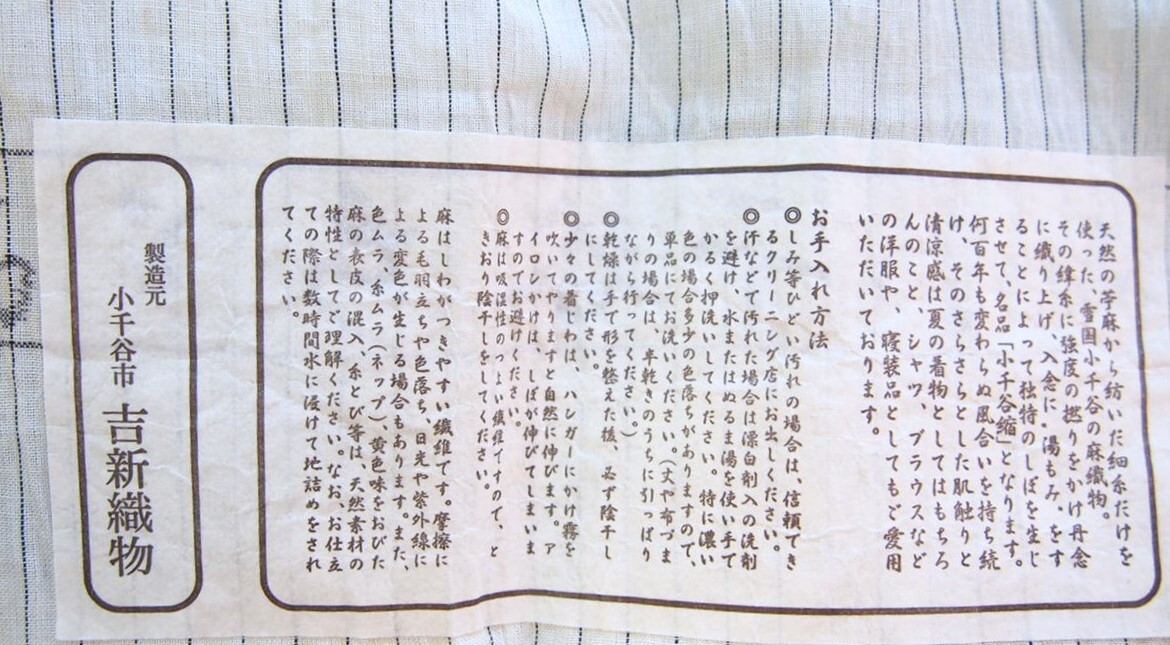 天然の苧麻から紡いだ細糸だけを
使った、雪国小千谷の麻織物。
その緯糸に強度の撚りをかけ丹念
に織り上げ、入念に〝湯もみ〟をす
ることによって独特のしぼを生じ
させて、名品「小千谷縮」となります。
何百年も変わらぬ風合いを持ち続
け、そのさらさらとした肌触りと
清涼感は夏の着物としてはもちろ
んのこと、シャツ、ブラウスなど
の洋服や、寝装品としてもご愛用
いただいております。
お手入れ方法
◎しみ等ひどい汚れの場合は、信頼でき
るクリーニング店にお出しください。
◎汗などで汚れた場合は漂白剤入の洗剤
を避け、水またはぬるま湯を使い手で
かるく押洗いしてください。特に濃い
色の場合多少の色落ちがありますので、
単品にてお洗いください。(丈や布づま
りの場合は、半乾きのうちに引っぱり
ながら行ってください。)
◎乾燥は手で形を整えた後、必ず陰干し
にしてください。
◎少々の着じわは、ハンガーにかけ霧を
吹いてやりますと自然に伸びます。ア
イロンかけは、しぼが伸びてしまいま
すのでお避けください。
◎麻は吸湿性のつよい繊維ですので、と
きおり陰干しをしてください。
麻はしわがつきやすい繊維です。摩擦に
よる毛羽立ちや色落ち、日光や紫外線に
よる変色が生じる場合もあります。また、
色ムラ、糸ムラ(ネップ)、黄色味をおびた
麻の表皮の混入、糸とび等は、天然素材の
特性としてご理解ください。なお、お仕立
ての際は数時間水に浸けて地詰めをされ
てください。
製造元
小千谷市 吉新織物